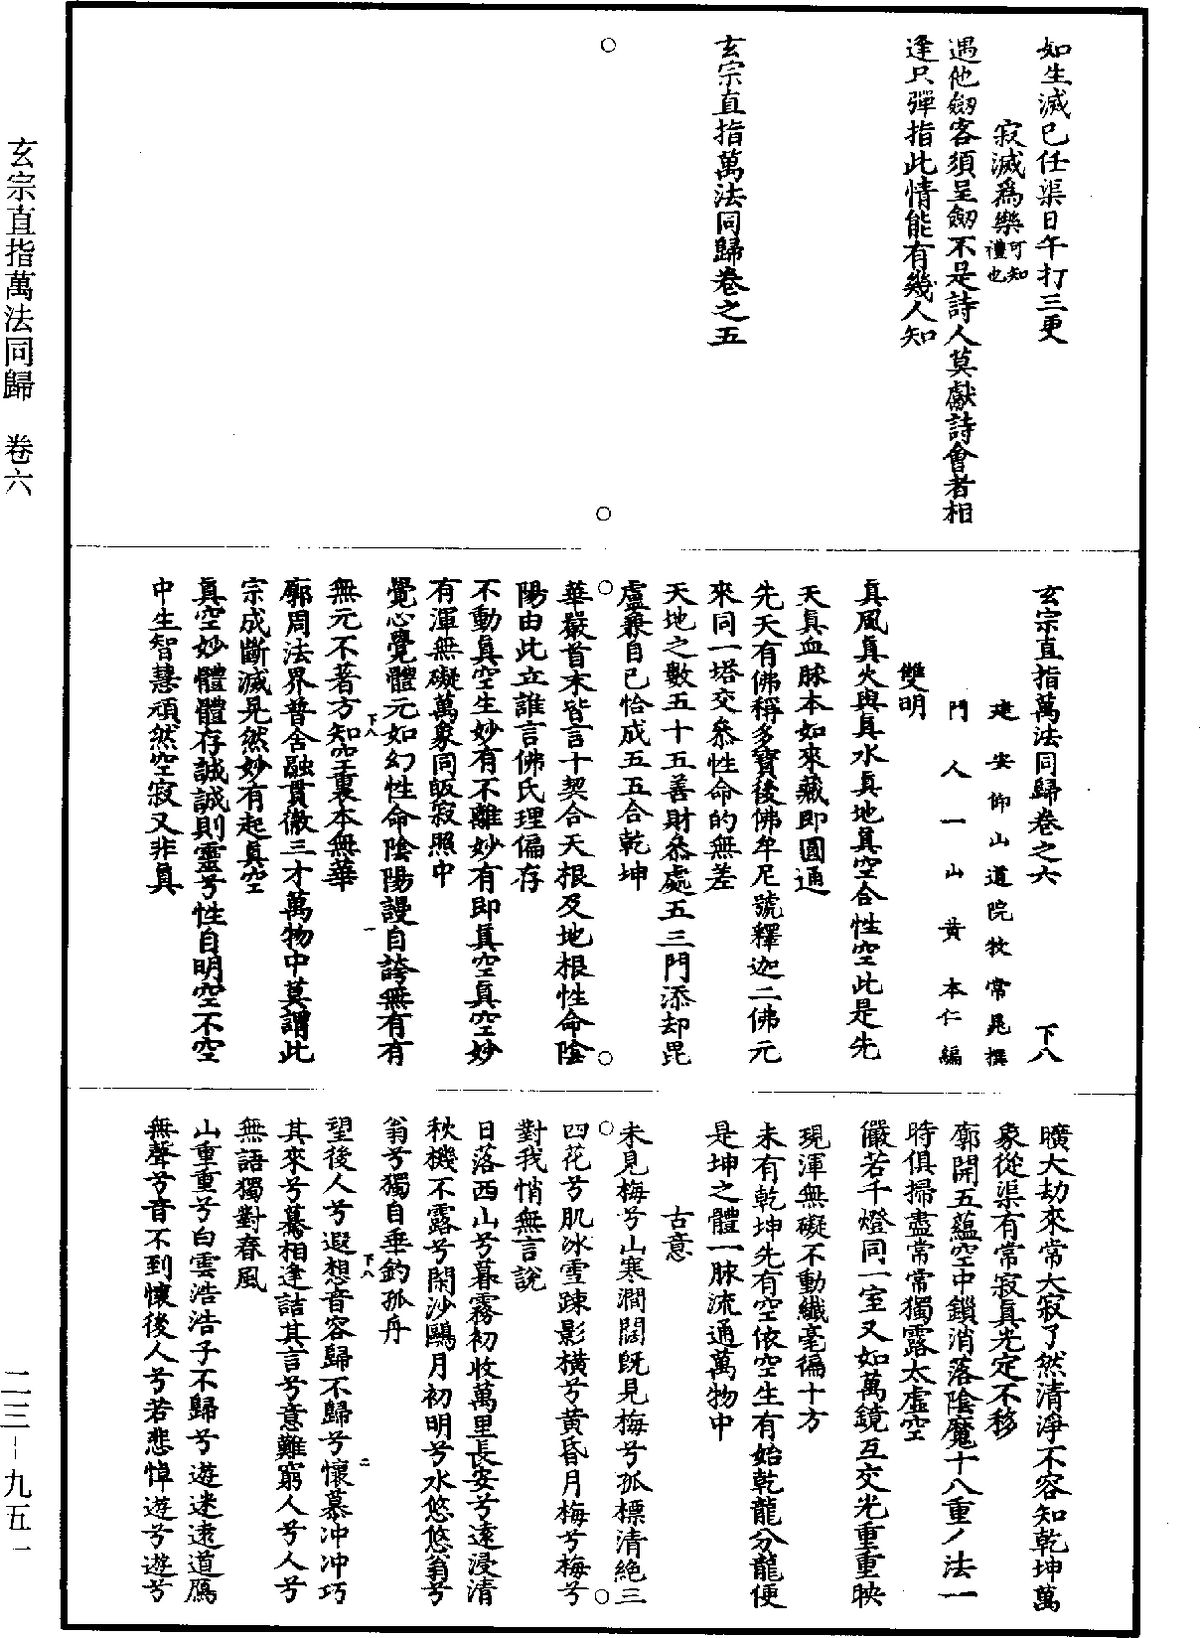 如生滅已任渠日午打三更
寂滅爲樂可知禮也
遇他劒客須呈劒不是詩人莫獻詩會者相
逢只彈指此情能有幾人知
玄宗直指萬法同歸卷之五
玄宗直指萬法同歸卷之六 下八
建安仰山道院牧常晁撰
門人一山黄本仁編
雙明
真風真火與真水真地真空合性空此是先
天真血脉本如來藏即圓通
先天有佛稱多寶後佛牟尼號釋迦二佛元
來同一塔交叅性命的無差
天地之數五十五善財叅處五三門添却毘
盧兼自已恰成五五合乾坤
華嚴首末皆言十契合天根及地根性命陰
陽由此立誰言佛氏理偏存
不動真空生妙有不離妙有即真空真空妙
有渾無礙萬象同皈寂照中
覺心覺體元如幻性命陰陽謾自誇無有有
無元不著方知空裏本無華
下八 一
廓周法界普含融貫徹三才萬物中莫謂此
宗成斷滅見然妙有起真空
真空妙體體存誠誠則靈兮性自明空不空
中生智慧頑然空寂又非真
曠大劫來常大寂了然清淨不容知乾坤萬
象從渠有常寂真光定不移
廓開五蘊空中鎖消落陰魔十八重八法一
時俱掃盡常常獨露太虛空
儼若千燈同一室又如萬鏡互交光重重映
現渾無礙不動纖毫徧十方
未有乾坤先有空依空生有始乾龍分龍便
是坤之體一脉流通萬物中
古意
未見梅兮山寒澗闊旣見梅兮孤標清絶三
四花兮肌冰雪踈影橫兮黄昏月梅兮梅兮
對我悄無言說
日落西山兮暮霧初收萬里長安兮遠浸清
秋機不露兮閑沙鷗月初明兮水悠悠翁兮
翁兮獨自垂釣孤舟
下八 二
望後人兮遐想音容歸不歸兮懷慕冲冲巧
其來兮驀相逢詰其言兮意難窮人兮人兮
無語獨對春風
山重重兮白雲浩浩子不歸兮遊迷逺道鴈
無聲兮音不到懷後人兮若悲悼遊兮遊兮
玄宗直指萬法同歸 卷六
二三－九五一